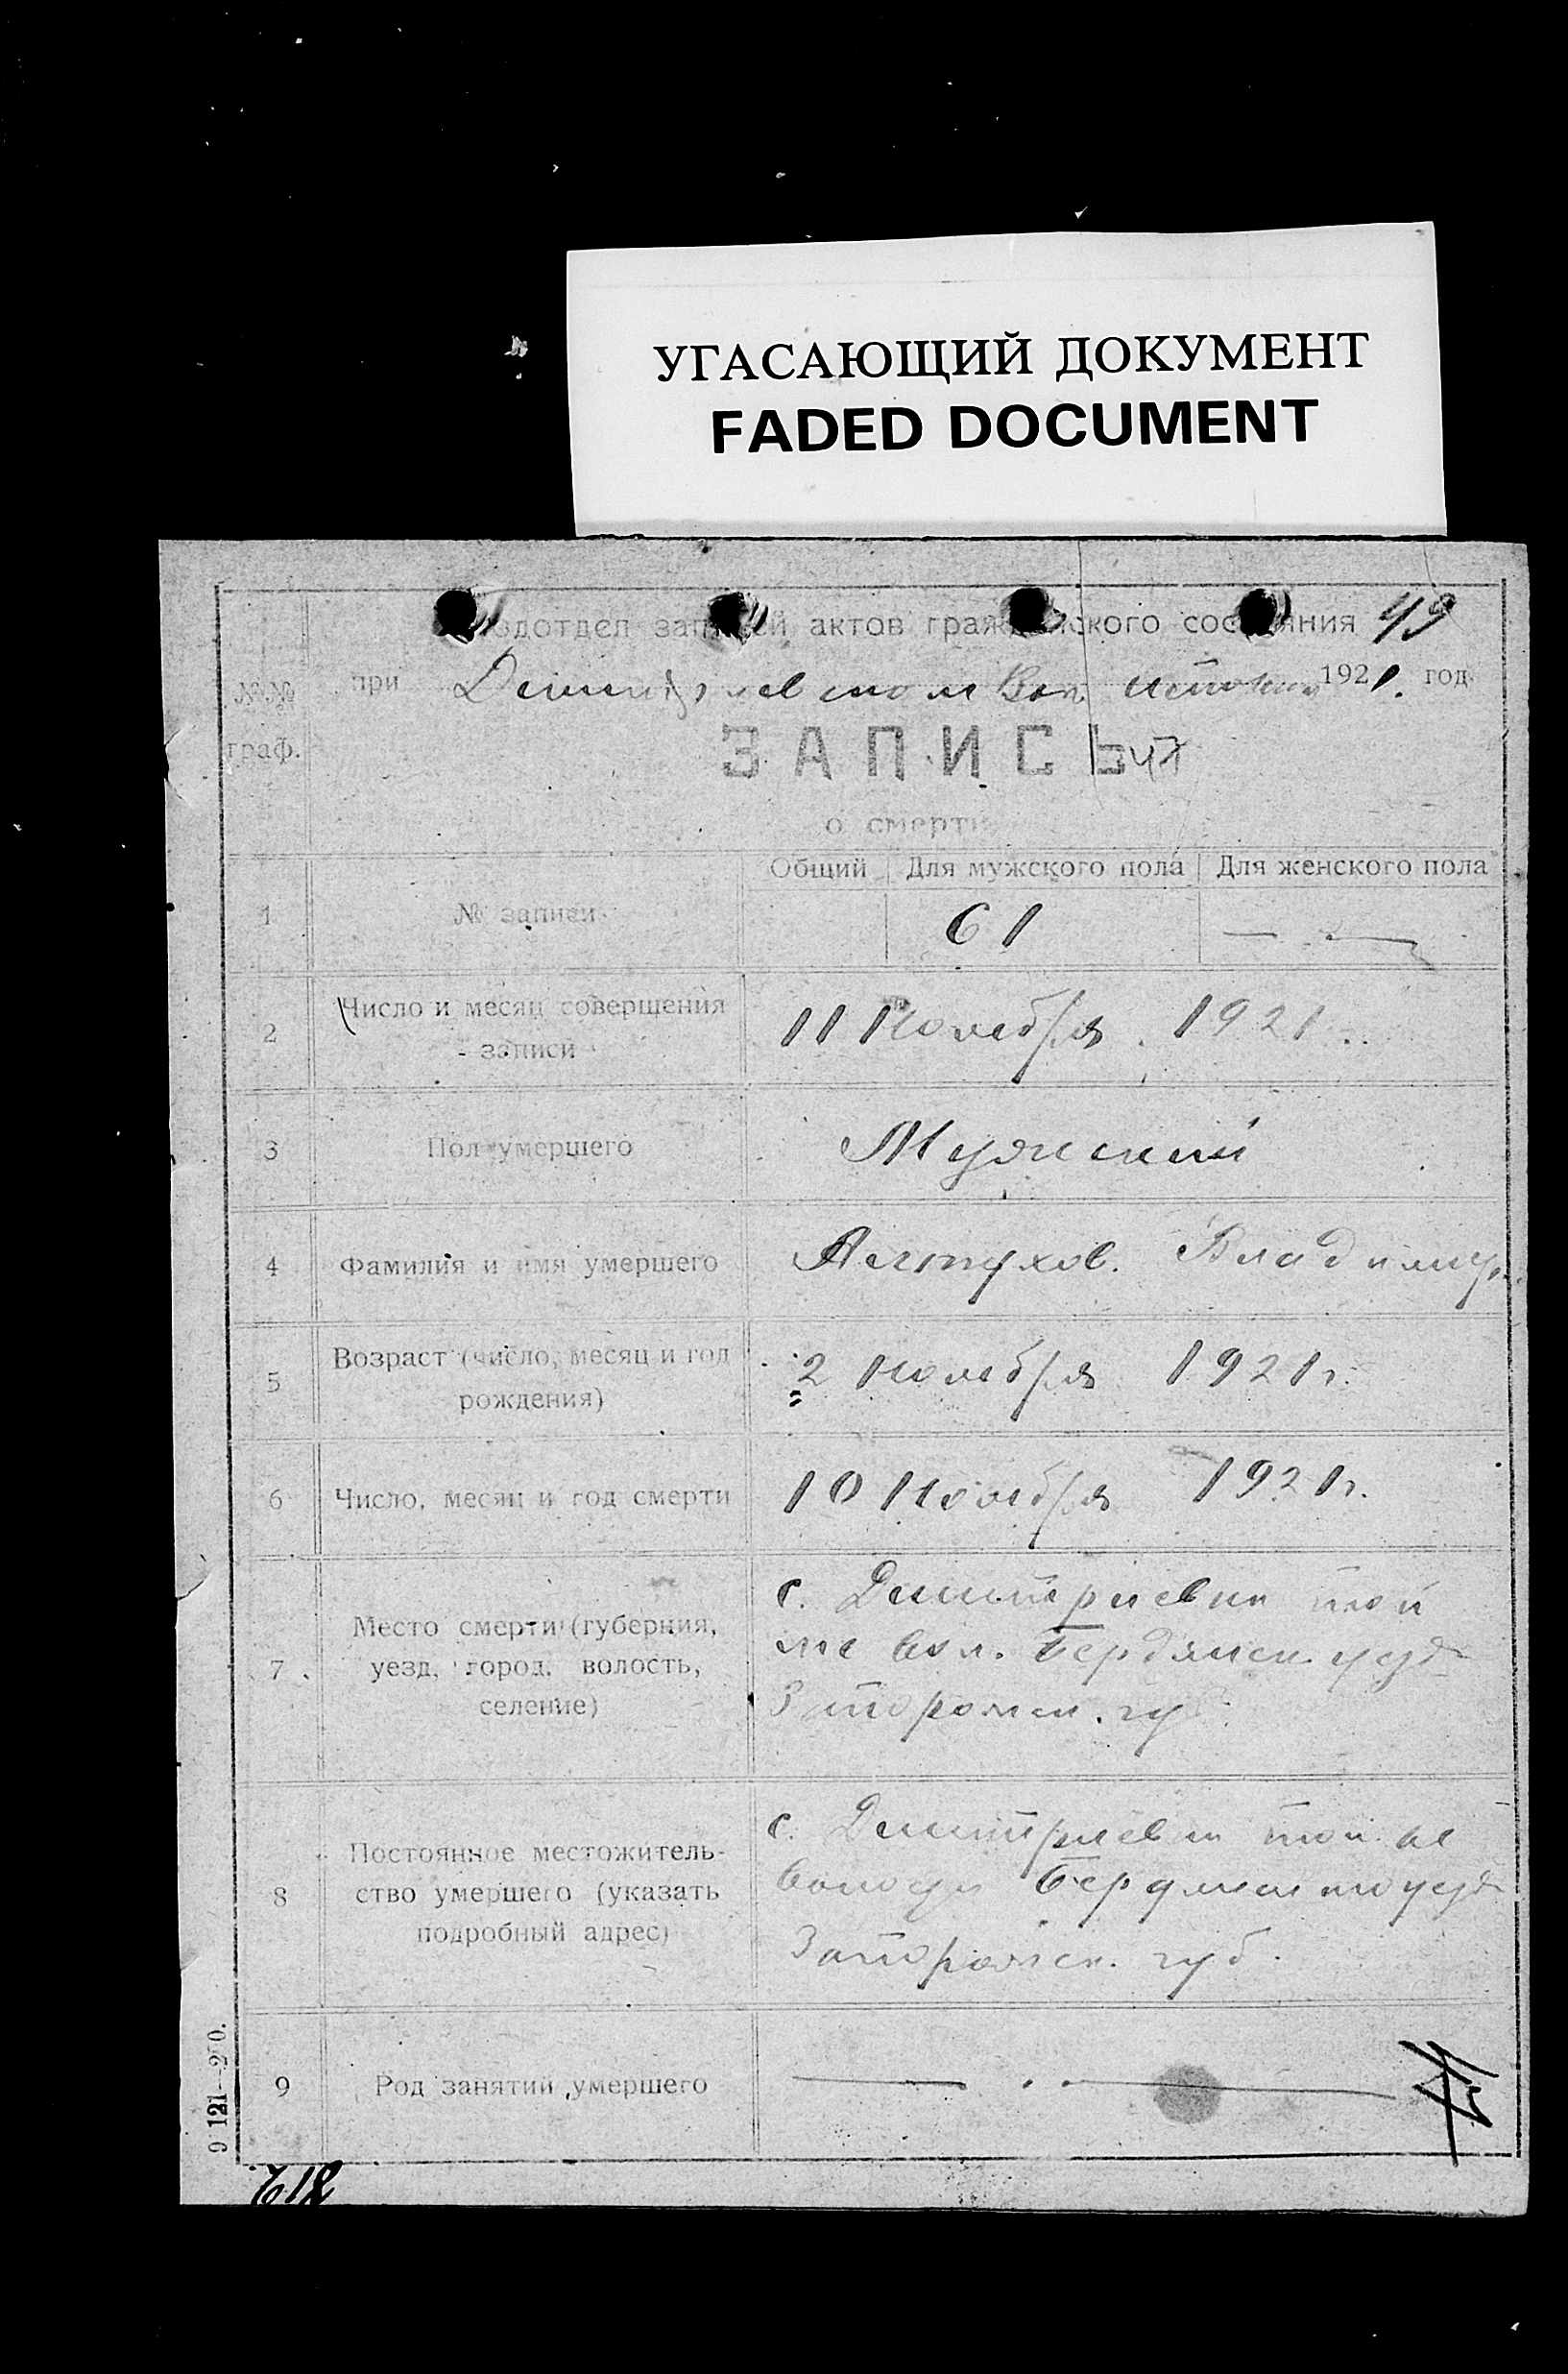 УГАСАЮЩИЙ ДОКУМЕНТ
FADED DOCUMENT
Подотдел записей актов гражданского состояния 49
№№ при 1921. год
граф.
ЗАПИСЬ 47
о смерти
Общий Для мужского пола Для женского пола
1 № записи 61
2 Число и месяц совершения
записи 11 Ноября 1921
3 Пол умершего Мужский
4 Фамилия и имя умершего Владимир
5 Возраст (число, месяц и год
рождения) 2 Ноября 1921 г.
6 Число, месяц и год смерти 10 Ноября 1921 г.
7 Место смерти (губерния,
уезд, город, волость,
селение)
с. Дмитриевки той
же вол. Бердянск. уезд
Запорожск. губ.
8 Постоянное местожитель-
ство умершего (указать
подробный адрес)
с. Дмитриевки той же
Запорожск. губ.
9 Род занятий умершего
9 121—20.
47
618